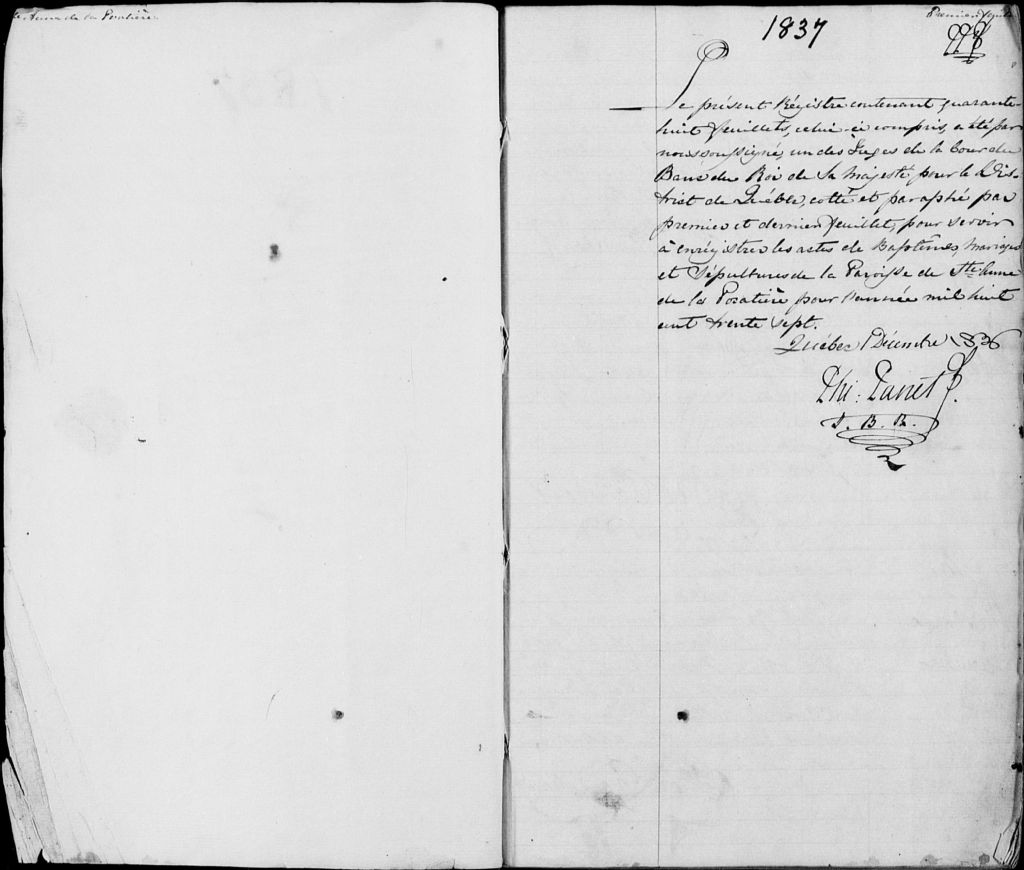 Ste Anne de la Pocatière.
Premier feuillet
1837
Le présent Régistre contenant quarante-
huit feuillets, celui-ci compris, a été par
nous soussigné, un des Juges de la Cour du
Banc du Roi de Sa Majesté, pour le Dis-
trict de Québec, cotté et paraphé par
premier et dernier feuillet, pour servir
à enrégistrer les actes de Baptêmes, Mariages
et Sépultures de la Paroisse de Ste Anne
de la Pocatière pour l'année mil huit
cent trente sept.
Québec 1 Décembre 1836
Phi: Panet
J. B. R.